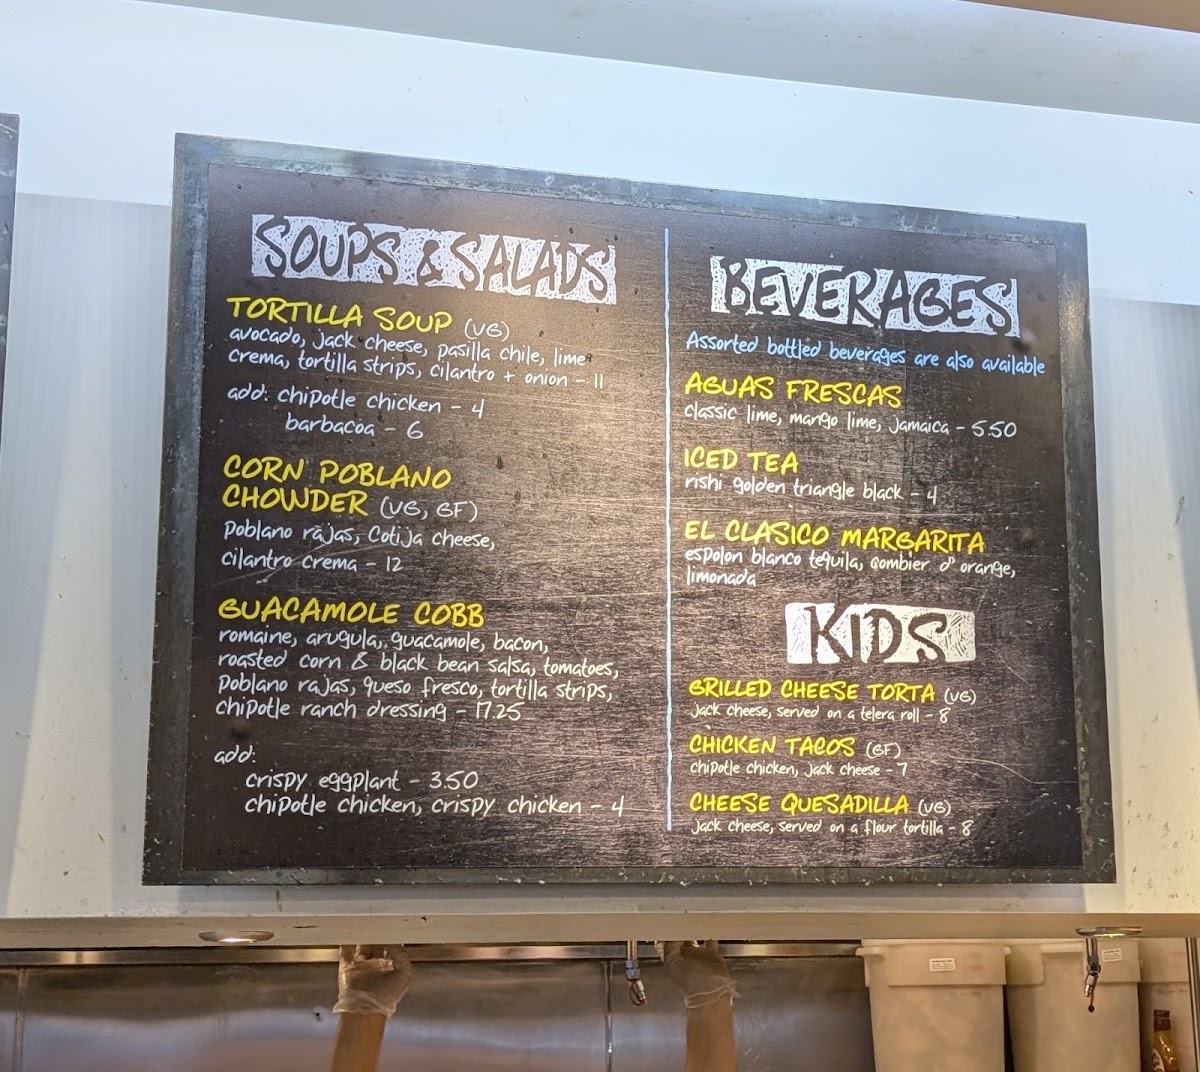 SOUPS & SALADS
TORTILLA SOUP (VG)
avocado, jack cheese, pasilla chile, lime
crema, tortilla strips, cilantro + onion - 11
add: chipotle chicken - 4
barbacoa - 6
CORN POBLANO
CHOWDER (VG, GF)
poblano rajas, Cotija cheese,
cilantro crema - 12
GUACAMOLE COBB
romaine, arugula, guacamole, bacon,
roasted corn & black bean salsa, tomatoes,
poblano rajas, queso fresco, tortilla strips,
chipotle ranch dressing - 17.25
add:
crispy eggplant - 3.50
chipotle chicken, crispy chicken - 4
BEVERAGES
Assorted bottled beverages are also available
AGUAS FRESCAS
classic lime, mango lime, jamaica - 5.50
ICED TEA
rishi golden triangle black - 4
EL CLASICO MARGARITA
espolon blanco tequila, combier d' orange,
limonada
KIDS
GRILLED CHEESE TORTA (VG)
jack cheese, served on a telera roll - 8
CHICKEN TACOS (GF)
chipotle chicken, jack cheese - 7
CHEESE QUESADILLA (VG)
jack cheese, served on a flour tortilla - 8